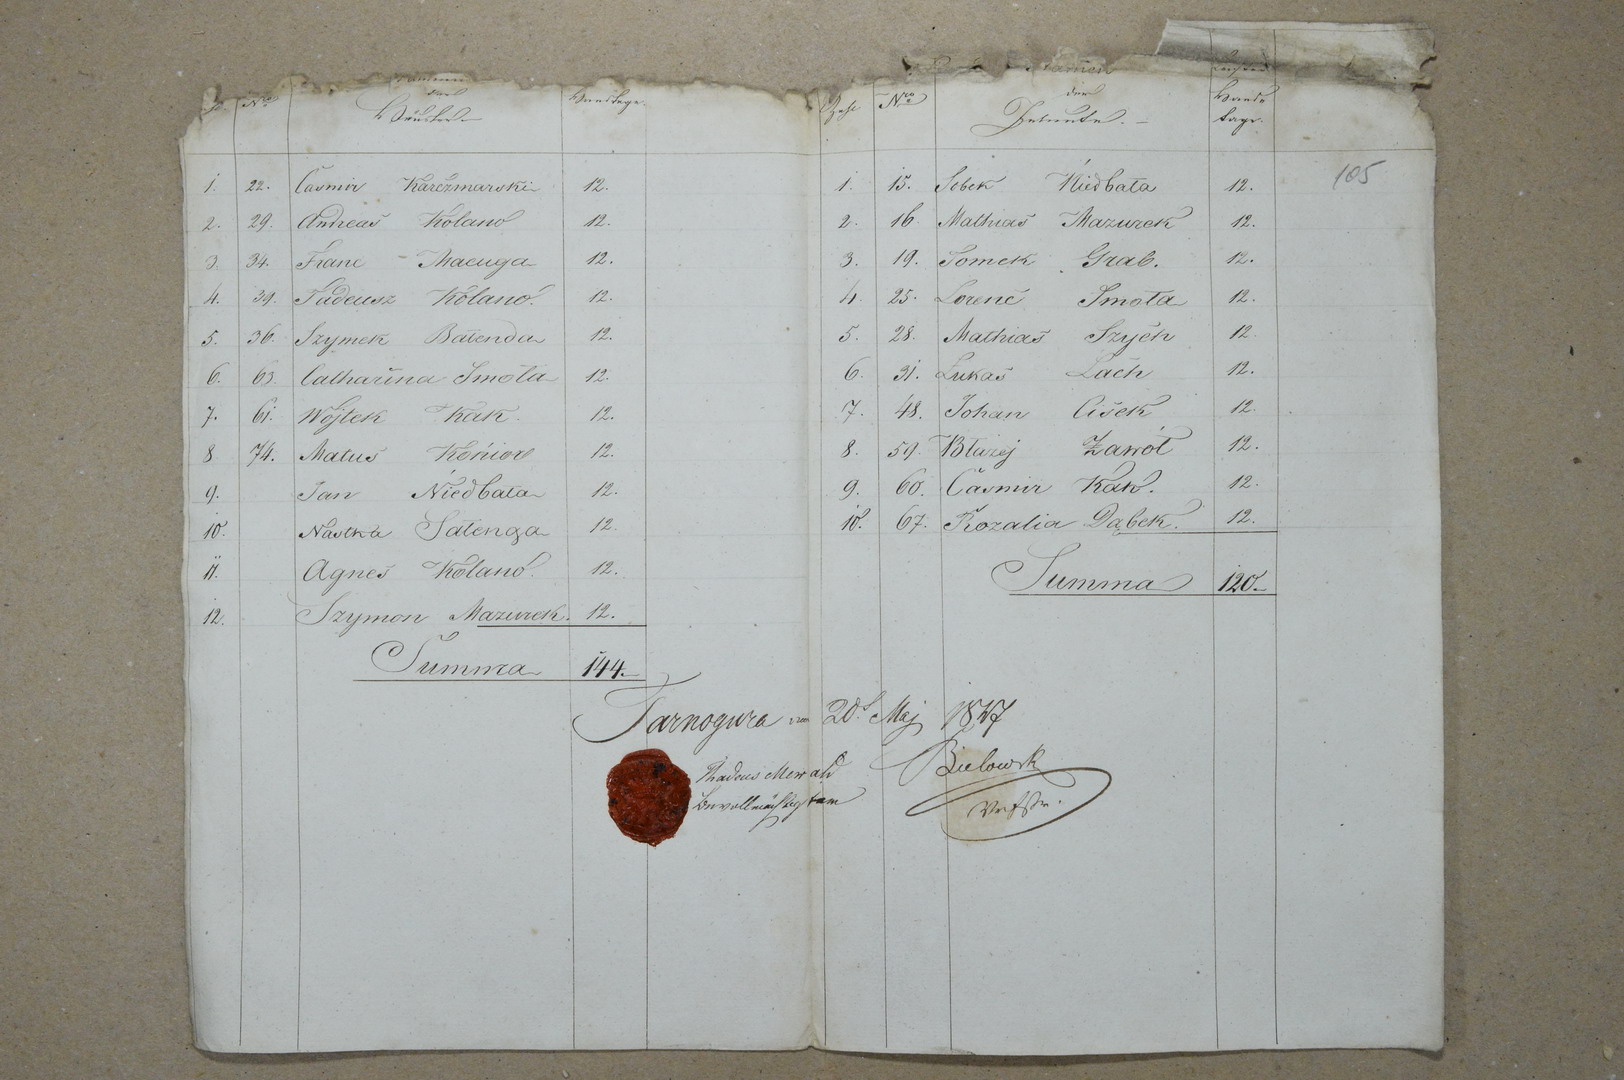 Nro
der
Häusler
Handtage
1. 22. Casmir Karczmarski 12.
2. 29. Andreas Kolano 12.
3. 34. Franc Macuga 12.
4. 39. Tadeusz Kolano. 12.
5. 36. Szymek Batenda 12.
6. 63. Catharina Smola 12.
7. 61. Wojtek Kak 12.
8 74. Matus Konior 12.
9. Jan Niedbała 12.
10. Nastka Satenga 12.
11. Agnes Kolano. 12.
12. Szymon Mazurek. 12.
Summa 144.
Zahl Nro
Namen
der
Inleute.
Hand-
tage.
105
1. 15. Sobek Niedbała 12.
2. 16. Mathias Mazurek 12.
3. 19. Tomek Grab. 12.
4. 25. Lorenc Smoła 12.
5. 28. Mathias Szych 12.
6. 31. Lukas Lach 12.
7. 48. Johan Cisek 12.
8. 59. Błażej Zawół 12.
9. 60. Casmir Kak. 12.
10. 67. Rozalia Dąbek. 12.
Summa 120.
Tarnogura 20. Maj 1847
Thadeus Mewald
Bevollmächtigter